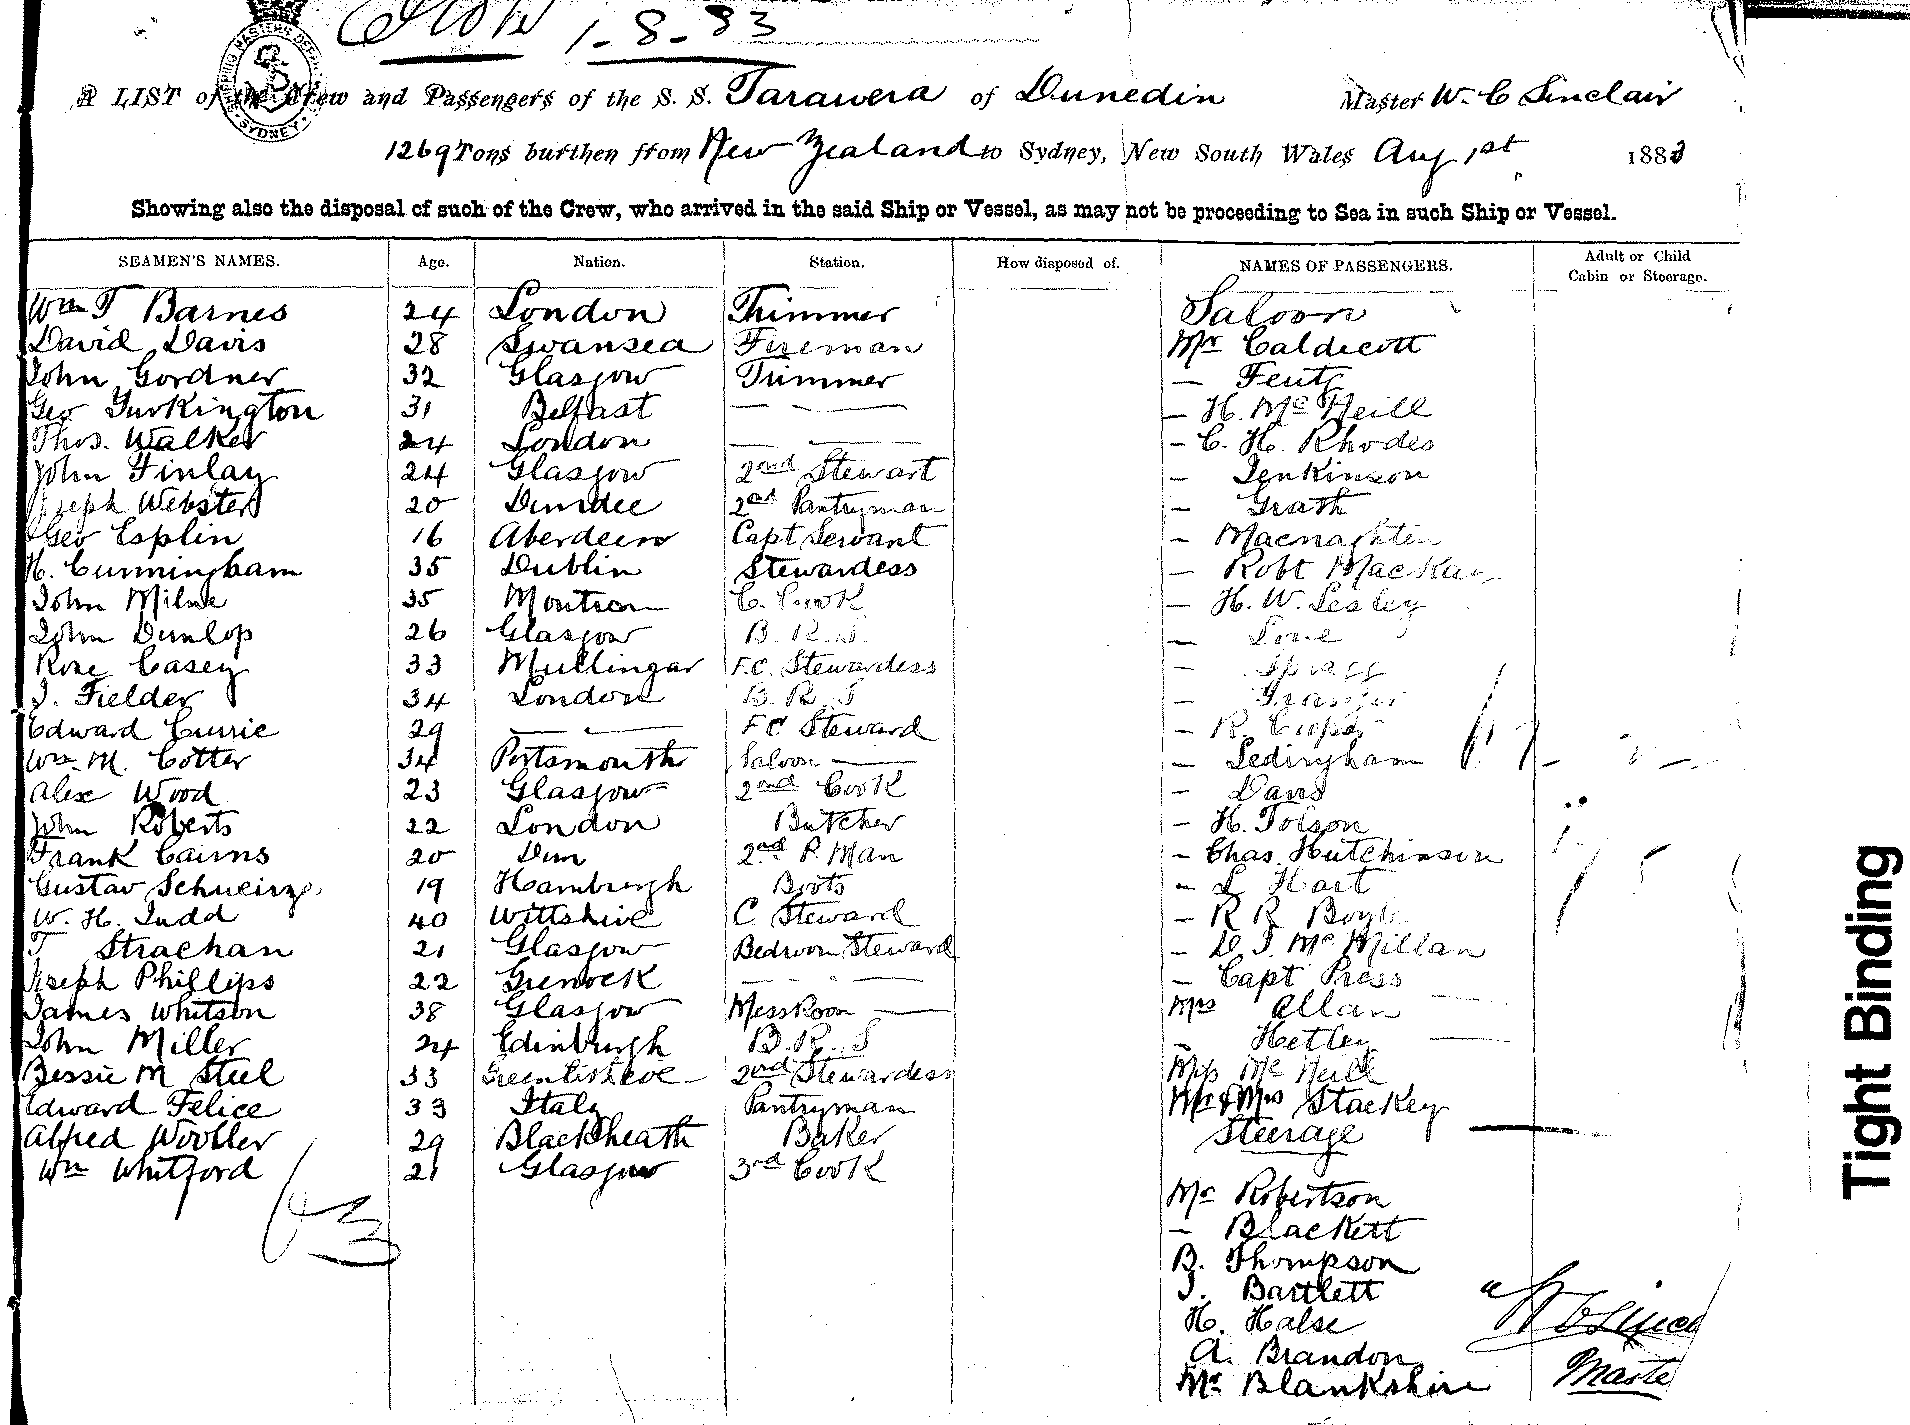 1-8-83
SYDNEY
A LIST of the Crew and Passengers of the S. S. Tarawera of Dunedin Master W. C Sinclair
1269 Tons burthen from New Zealand to Sydney, New South Wales Aug 1st 1883
Showing also the disposal of such of the Crew, who arrived in the said Ship or Vessel, as may not be proceeding to Sea in such Ship or Vessel.
SEAMEN'S NAMES. Age. Nation. Station. How disposed of. NAMES OF PASSENGERS. Adult or Child Cabin or Steerage.
Wm T Barnes 24 London Trimmer Saloon
David Davis 28 Swansea Fireman Mr Caldecott
John Gordner 32 Glasgow Trimmer — Fentz
Geo Turkington 31 Belfast — — — H. McNeill
Thos. Walker 24 London — — — C. H. Rhodes
John Finlay 24 Glasgow 2nd Stewart — Jenkinson
Joseph Webster 20 Dundee 2nd Pantryman — Grath
Geo Esplin 16 Aberdeen Capt Servant — Macnaghten
H. Cunningham 35 Dublin Stewardess — Robt MacKay
John Milne 35 C. Cook — H. W. Lesley
John Dunlop 26 Glasgow B. R. S. —
Rose Casey 33 Mullingar F.C. Stewardess — Spragg
J. Fielder 34 London B. R. S —
Edward Currie 29 — " — F C Steward — R. Cooper
Wm. M. Cotter 34 Portsmouth Saloon — — Ledingham
Alex Wood 23 Glasgow 2nd Cook — Davis
John Roberts 22 London Butcher — H. Tolson
Frank Cairns 20 Dun 2nd P. Man — Chas. Hutchinson
Gustav 19 Hamburgh Boots — L Hart
W. H. Judd 40 Wiltshire C Steward — R R Boyle
T Strachan 21 Glasgow Bedroom Steward — D. J. McMillan
Joseph Phillips 22 Grenock — " — — Capt Press
James Whitson 38 Glasgow Messroom — Mrs Allan —
John Miller 24 Edinburgh B. R. S — Hetley —
Bessie M Steel 33 2nd Stewardess Miss McNeill
Edward Felice 33 Italy Pantryman Mr & Mrs Stackey
Alfred Wooller 29 Blackheath Baker Steerage
Wm Whitford 21 Glasgow 3rd Cook
Mr Robertson
— Blackett
B. Thompson
J. Bartlett
H. Halse
A. Brandon
Mr Blankshire
Tight Binding